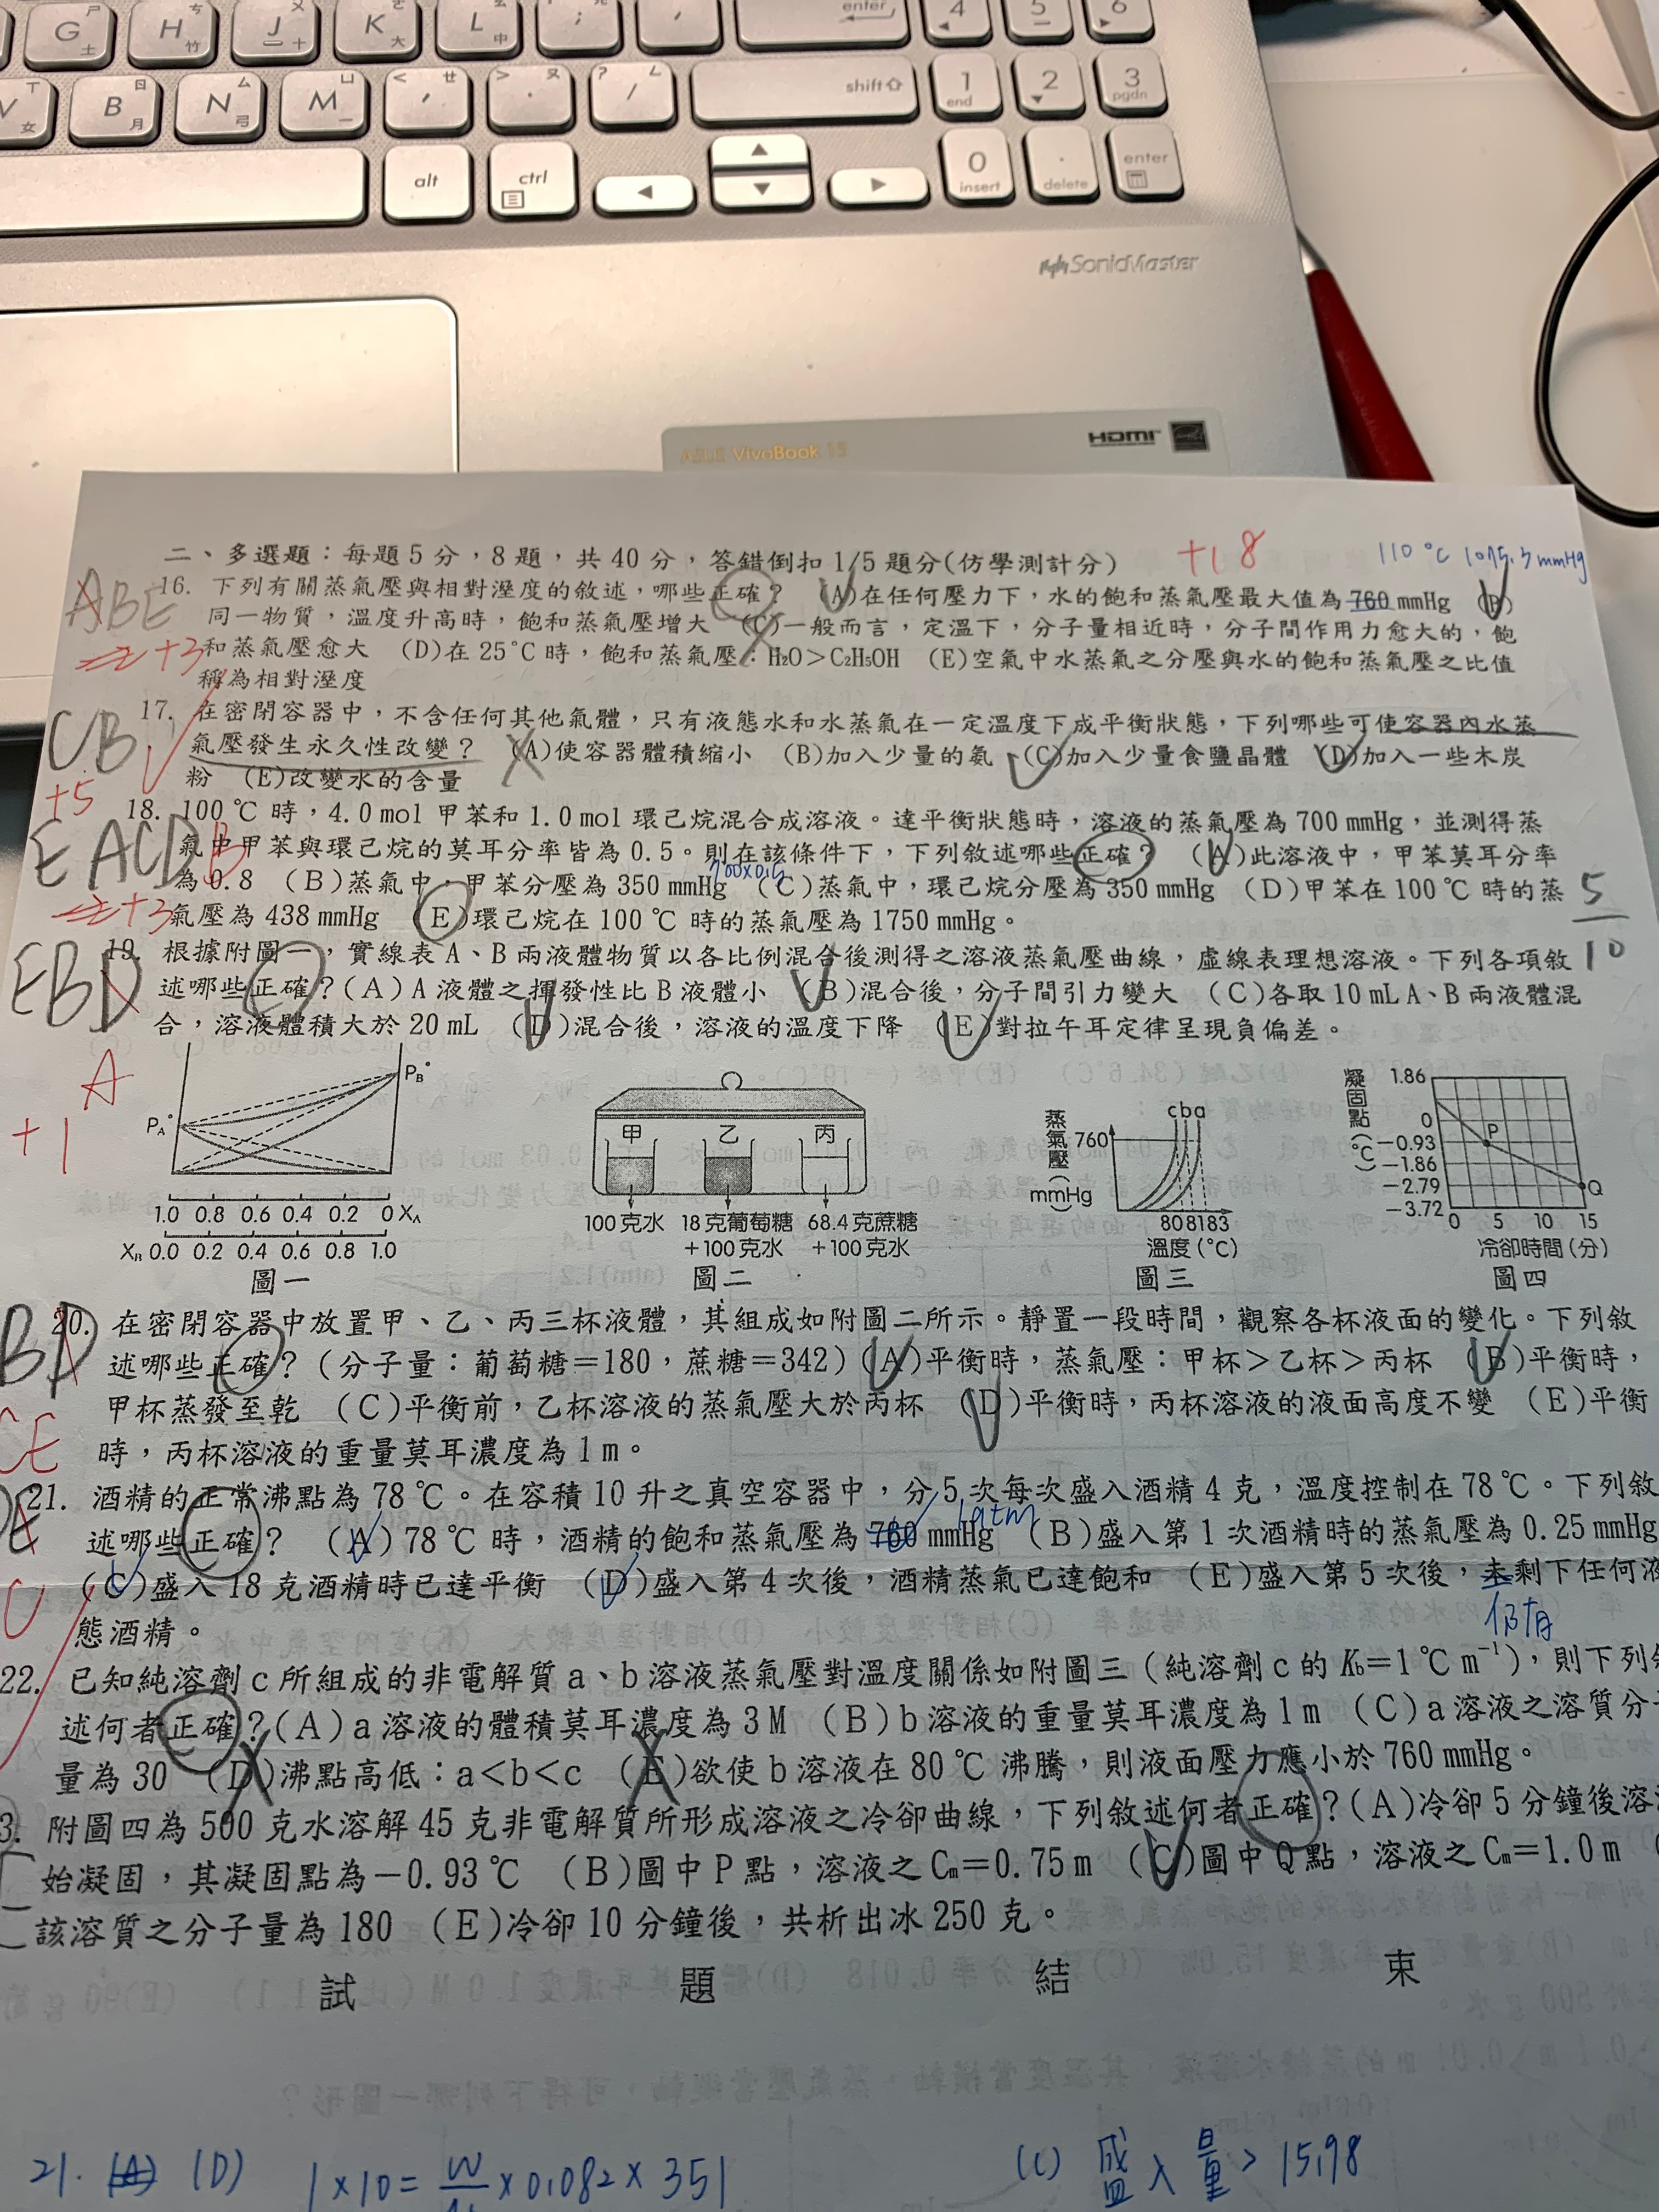 G ㄕ 土
H ㄘ 竹
J ㄨ 十
K ㄜ 大
L ㄠ 中
enter
4
5
6
B ㄖ 月
N ㄙ 弓
M ㄩ 一
< , ㄝ
> . ㄡ
? / ㄥ
shift
1 end
2
3 pgdn
alt
ctrl
0 insert
. delete
enter
SonicMaster
ASUS VivoBook 15
HDMI
二、多選題：每題5分，8題，共40分，答錯倒扣1/5題分(仿學測計分)
+18
110℃ 1075.3mmHg
ABE
16. 下列有關蒸氣壓與相對溼度的敘述，哪些正確？ (A)在任何壓力下，水的飽和蒸氣壓最大值為760 mmHg (B)
同一物質，溫度升高時，飽和蒸氣壓增大 (C)一般而言，定溫下，分子量相近時，分子間作用力愈大的，飽
+3
和蒸氣壓愈大 (D)在25℃時，飽和蒸氣壓：H₂O＞C₂H₅OH (E)空氣中水蒸氣之分壓與水的飽和蒸氣壓之比值
稱為相對溼度
CB
17. 在密閉容器中，不含任何其他氣體，只有液態水和水蒸氣在一定溫度下成平衡狀態，下列哪些可使容器內水蒸
氣壓發生永久性改變？ (A)使容器體積縮小 (B)加入少量的氨 (C)加入少量食鹽晶體 (D)加入一些木炭
粉 (E)改變水的含量
+5
18. 100℃時，4.0 mol 甲苯和1.0 mol 環己烷混合成溶液。達平衡狀態時，溶液的蒸氣壓為700 mmHg，並測得蒸
E ACD B
氣中甲苯與環己烷的莫耳分率皆為0.5。則在該條件下，下列敘述哪些正確？ (A)此溶液中，甲苯莫耳分率
700×0.5
為0.8 (B)蒸氣中，甲苯分壓為350 mmHg (C)蒸氣中，環己烷分壓為350 mmHg (D)甲苯在100℃時的蒸
+3
氣壓為438 mmHg (E)環己烷在100℃時的蒸氣壓為1750 mmHg。
5
10
EBD
19. 根據附圖一，實線表A、B兩液體物質以各比例混合後測得之溶液蒸氣壓曲線，虛線表理想溶液。下列各項敘
述哪些正確？(A)A液體之揮發性比B液體小 (B)混合後，分子間引力變大 (C)各取10 mL A、B兩液體混
合，溶液體積大於20 mL (D)混合後，溶液的溫度下降 (E)對拉午耳定律呈現負偏差。
A
+1
P_A°
P_B°
1.0 0.8 0.6 0.4 0.2 0 X_A
X_B 0.0 0.2 0.4 0.6 0.8 1.0
圖一
甲 乙 丙
100克水 18克葡萄糖+100克水 68.4克蔗糖+100克水
圖二
蒸氣壓(mmHg)
760
c b a
80 81 83
溫度(℃)
圖三
凝固點(℃)
1.86
0
−0.93
−1.86
−2.79
−3.72
P
Q
0 5 10 15
冷卻時間(分)
圖四
BD
20. 在密閉容器中放置甲、乙、丙三杯液體，其組成如附圖二所示。靜置一段時間，觀察各杯液面的變化。下列敘
述哪些正確？(分子量：葡萄糖＝180，蔗糖＝342)(A)平衡時，蒸氣壓：甲杯＞乙杯＞丙杯 (B)平衡時，
甲杯蒸發至乾 (C)平衡前，乙杯溶液的蒸氣壓大於丙杯 (D)平衡時，丙杯溶液的液面高度不變 (E)平衡
CE
時，丙杯溶液的重量莫耳濃度為1 m。
21. 酒精的正常沸點為78℃。在容積10升之真空容器中，分5次每次盛入酒精4克，溫度控制在78℃。下列敘
DE
1atm
述哪些正確？ (A)78℃時，酒精的飽和蒸氣壓為760 mmHg (B)盛入第1次酒精時的蒸氣壓為0.25 mmHg
(C)盛入18克酒精時已達平衡 (D)盛入第4次後，酒精蒸氣已達飽和 (E)盛入第5次後，未剩下任何液
仍有
態酒精。
22. 已知純溶劑c所組成的非電解質a、b溶液蒸氣壓對溫度關係如附圖三(純溶劑c的Kb＝1℃ m⁻¹)，則下列敘
述何者正確？(A)a溶液的體積莫耳濃度為3 M (B)b溶液的重量莫耳濃度為1 m (C)a溶液之溶質分
量為30 (D)沸點高低：a＜b＜c (E)欲使b溶液在80℃沸騰，則液面壓力應小於760 mmHg。
3. 附圖四為500克水溶解45克非電解質所形成溶液之冷卻曲線，下列敘述何者正確？(A)冷卻5分鐘後溶
始凝固，其凝固點為−0.93℃ (B)圖中P點，溶液之Cm＝0.75 m (C)圖中Q點，溶液之Cm＝1.0 m (
該溶質之分子量為180 (E)冷卻10分鐘後，共析出冰250克。
試 題 結 束
21. (A) (D) 1×10=W/ ×0.082×351
(C) 盛入量> 15.98